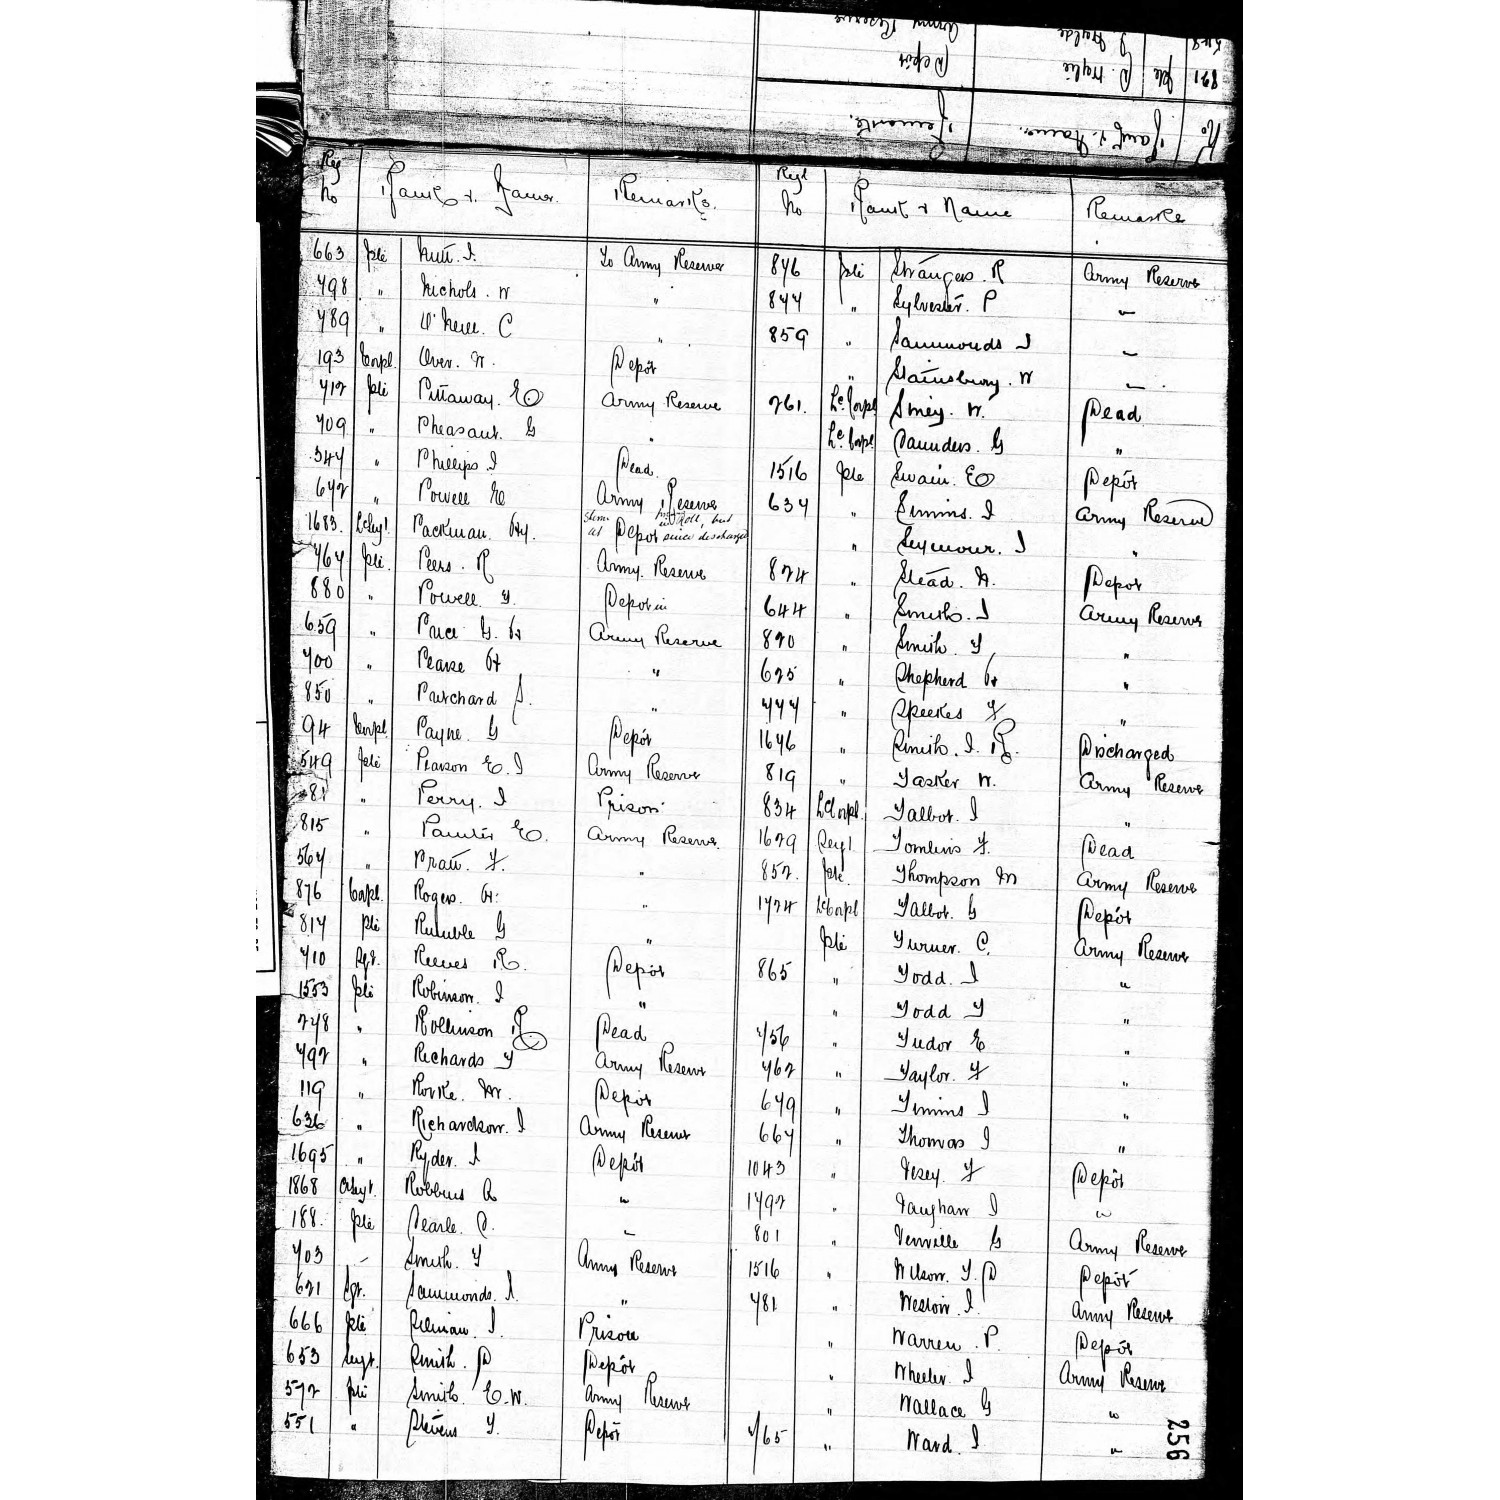 Reg No Rank & Name. Remarks.
663 Pte Nutt. J. To Army Reserve
798 " Nichols. W "
789 " O'Neill. C "
193 Corpl. Over. W. Depôt
712 Pte Pittaway. E Army Reserve
709 " Pheasant. G "
344 " Phillips J Dead.
642 " Powell E Army Reserve
1683. Packman. Hy. at Depôt since discharged
764 Pte. Peers. R Army. Reserve
880 " Powell. Depot
659 " Price G. H Army Reserve
700 " Pearse H "
850 " Pritchard S. "
94 Corpl. Payne. G Depôt
549 Pte Pearson E. J Army Reserve
81 " Perry. J Prison.
815 " Painter E. Army Reserve
564 " Pratt. F. "
876 Corpl. Rogers. H. "
817 Pte Rumble G "
710 Sgt. Reeves R. Depôt
1553 Pte Robinson. J "
748 " Rollinson R Dead
792 " Richards T Army Reserve
119 " Rorke. M. Depôt
636 " Richardson. J Army Reserve
1695 " Ryder. J Depôt
1868 Robbins A "
188. Pte Searle. C. "
703 " Smith. T Army Reserve
621 Sgt. Sammonds. J. "
666 Pte Silman. J. Prison
653 Sergt. Smith. D Depôt
572 Pte Smith E. W. Army Reserve
551 " Stevens T. Depôt
Regl No Rank & Name Remarks
846 Pte Strangers. R Army Reserve
844 " Sylvester. P "
859 " Sammonds J "
" Stainsbury. W "
761. Lc. Corpl Smey. W. Dead
Lc. Corpl Saunders. G "
1516 Pte Swain. E Depôt
634 Simms. J Army Reserve
" Seymour. J "
874 " Stead. W. Depot
644 " Smith. J Army Reserve
820 " Smith. T, "
625 " Shepherd H "
777 " Speekes F "
1646 " Smith. J. R. Discharged
819 " Tasker W. Army Reserve
834 Lc Corpl. Talbot. J "
1629 Sergt. Tomlins F. Dead
852. Pte. Thompson M Army Reserve
1724 Lc Corpl Talbot. G Depôt
Pte Turner. C. Army Reserve
865 " Todd. J "
" Todd T "
756 " Tudor E "
762 " Taylor. F "
649 " Timms J "
667 " Thomas J "
1043 " Vesey. F Depôt
1792 " Vaughan J "
801 " Venville G Army Reserve
1516 " Wilson. T. D Depôt
781 " Weston. J. Army Reserve
" Warren. P. Depôt
" Wheeler. J Army Reserve
" Wallace G "
765 " Ward. J "
256